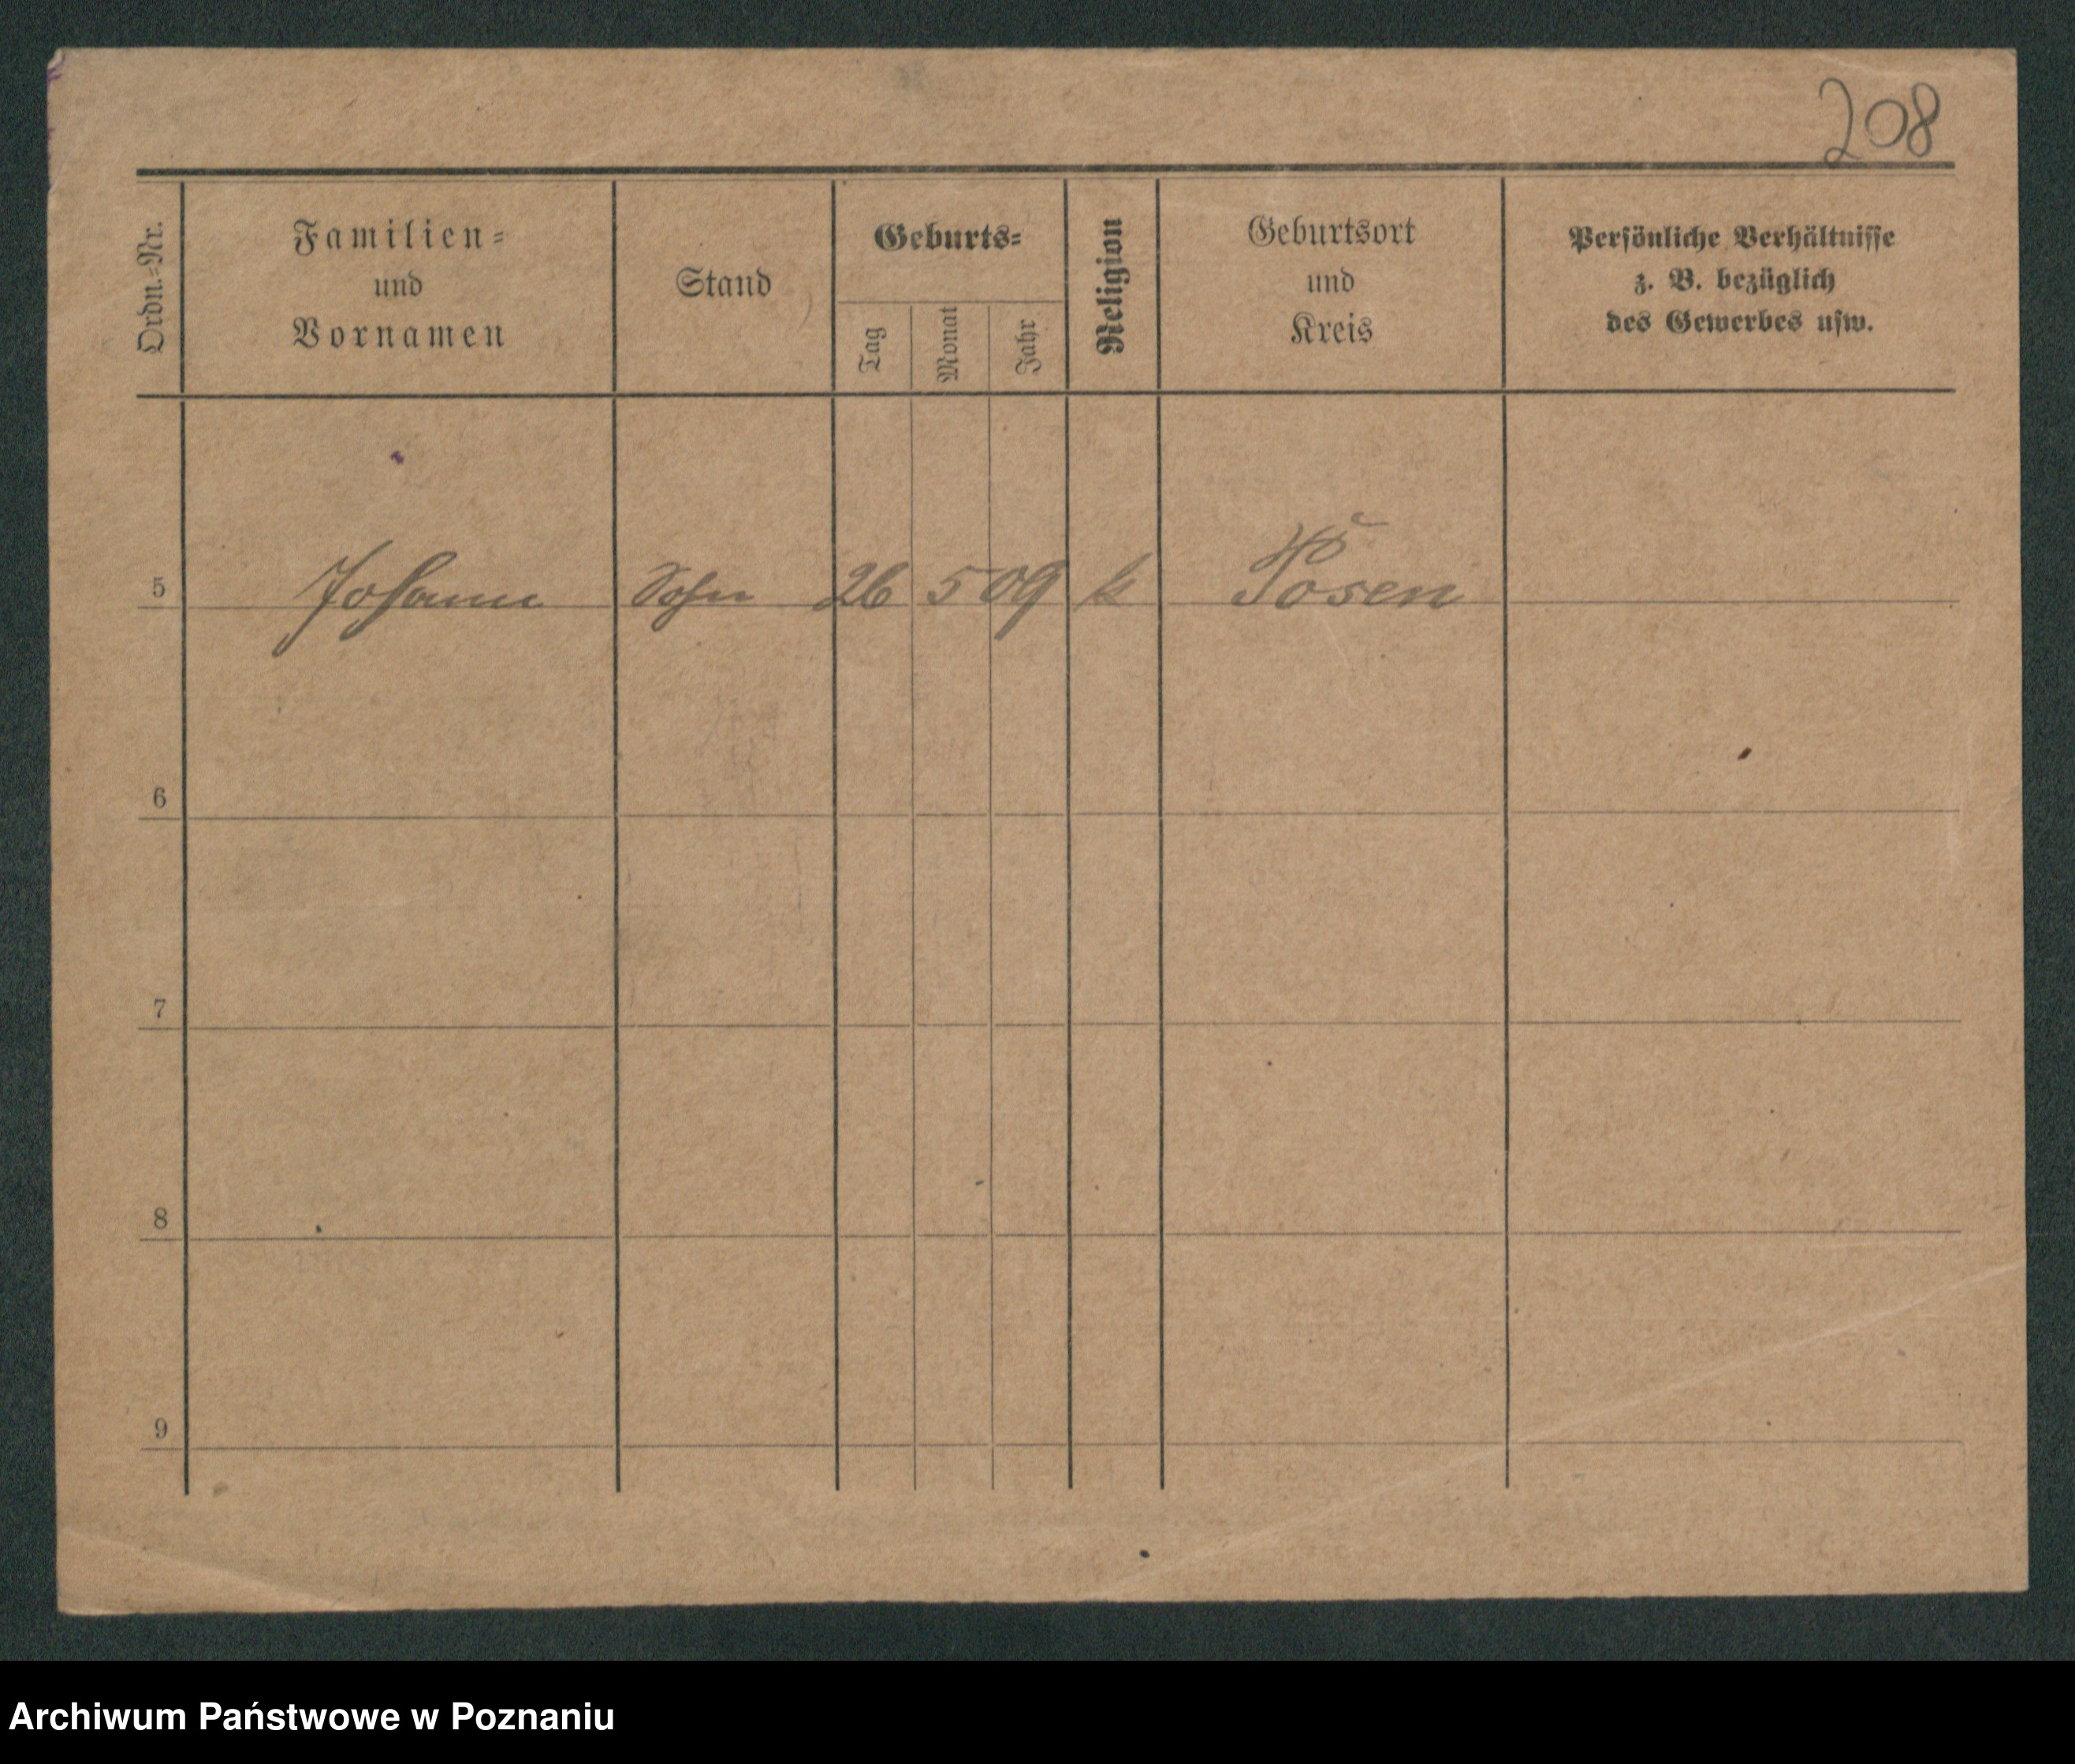 208
Ordn.-Nr.
Familien-
und
Vornamen
Stand
Geburts-
Tag
Monat
Jahr
Religion
Geburtsort
und
Kreis
Persönliche Verhältnisse
z. B. bezüglich
des Gewerbes usw.
5 Johann Sohn 26 5 09 k Posen
6
7
8
9
Archiwum Państwowe w Poznaniu